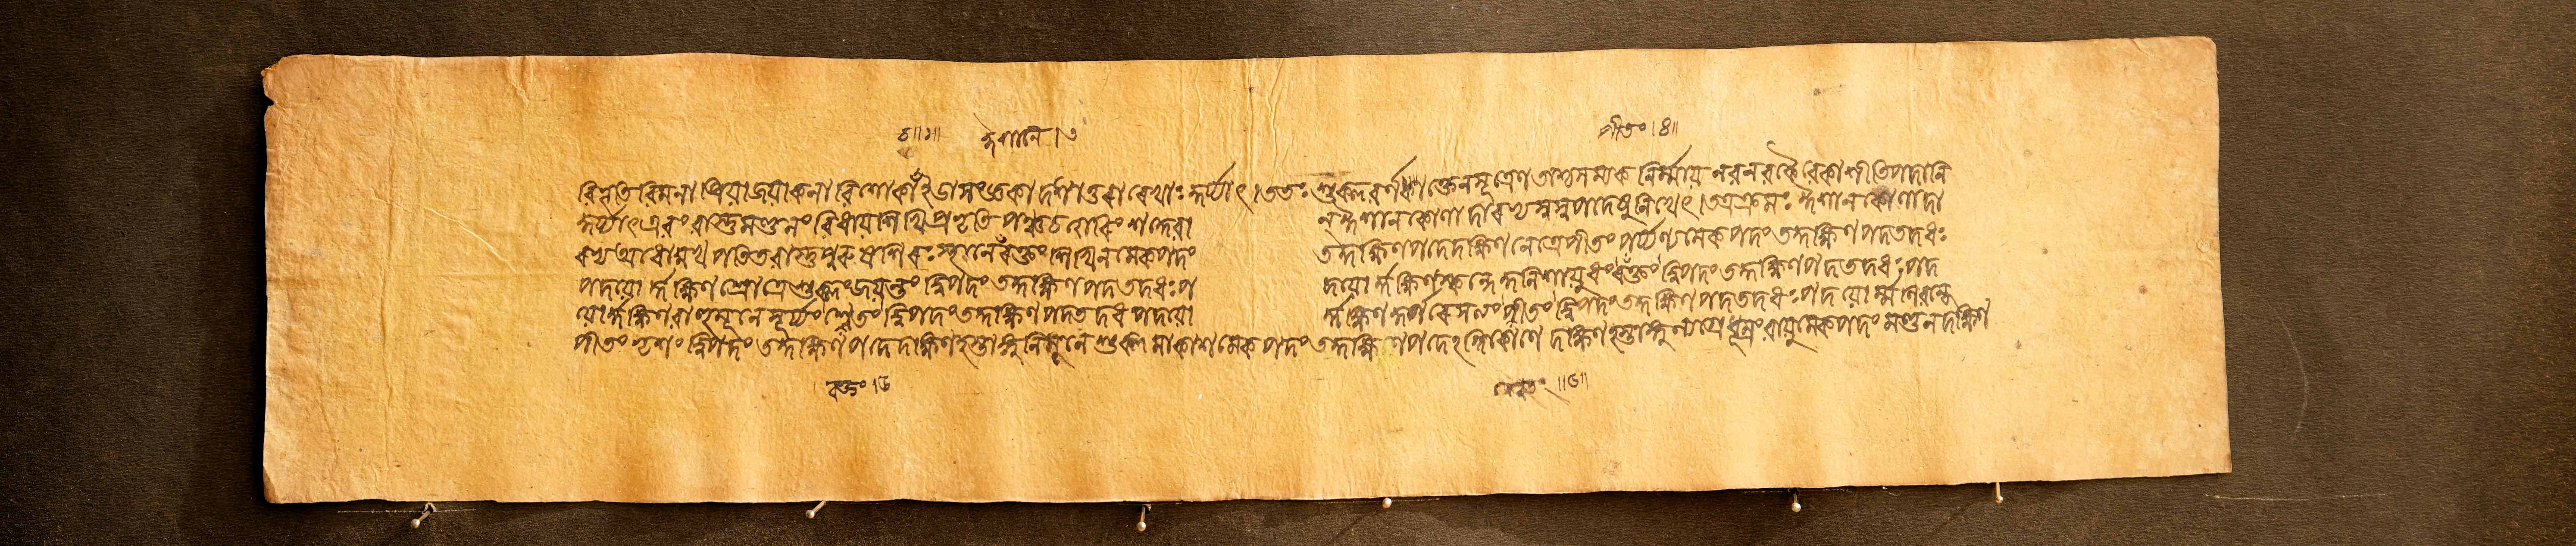 ঈশানে।৩ পীতং।৪॥
বিভূতি বিমলা প্রিয়া জয়া কলা বিশোকা ইডা সংজ্ঞকা দশোত্তৰা ৰেখাঃ কুর্য্যাৎ।ততঃ শুক্লবর্ণকাক্তেনসূত্রেণ তাশ্চসম্যক নির্ম্মায় নবনবকৈৰেকাশীতিপদানি
কুর্য্যাৎএবং বাস্তুমণ্ডলং বিধায় শিখিপ্রভৃতি পঞ্চচত্বাৰিংশদ্দেবা নীশানকোণা দাৰভ্য পদেষুলিখেৎ।তত্রক্রমঃ ঈশানকোণাদা
ৰভ্য অধোমুখ পতিতবাস্তুপুৰুষশিৰঃস্থানেৰক্তং শিখিনমেকপদং তদ্দক্ষিণপদেদক্ষিণনেত্রেপীতং পর্য্যণ্যমেকপদং তদ্দক্ষিণপদতদধঃ
পদয়ো র্দক্ষিণশ্রোত্রেশুক্লংজয়ন্তং দ্বিপদং তদ্দক্ষিণপদতদধঃপ দয়ো র্দক্ষিণস্কন্ধে কুলিশায়ুধংৰক্তং দ্বিপদং তদ্দক্ষিণপদতদধঃপদ
য়োর্দক্ষিণবাহুমূলে সূর্য্যংশ্বেতং দ্বিপদংতদ্দক্ষিণপদতদধ পদয়ো র্দক্ষিণকূর্পৰেসত্যং পীতং দ্বিপদংতদ্দক্ষিণপদতদধঃপদয়োর্ম্মণিবন্ধে
পীতং ভৃশং দ্বিপদং তদ্দক্ষিণপদেদক্ষিণহস্তাঙ্গুলিমূলে শুক্লমাকাশমেকপদংতদ্দক্ষিণপদেঽগ্নিকোণে দক্ষিণহস্তাঙ্গুল্যগ্রেধূম্রংবায়ুমেকপদং মণ্ডলদক্ষিণ
ৰক্তং।৫ ॥৬॥